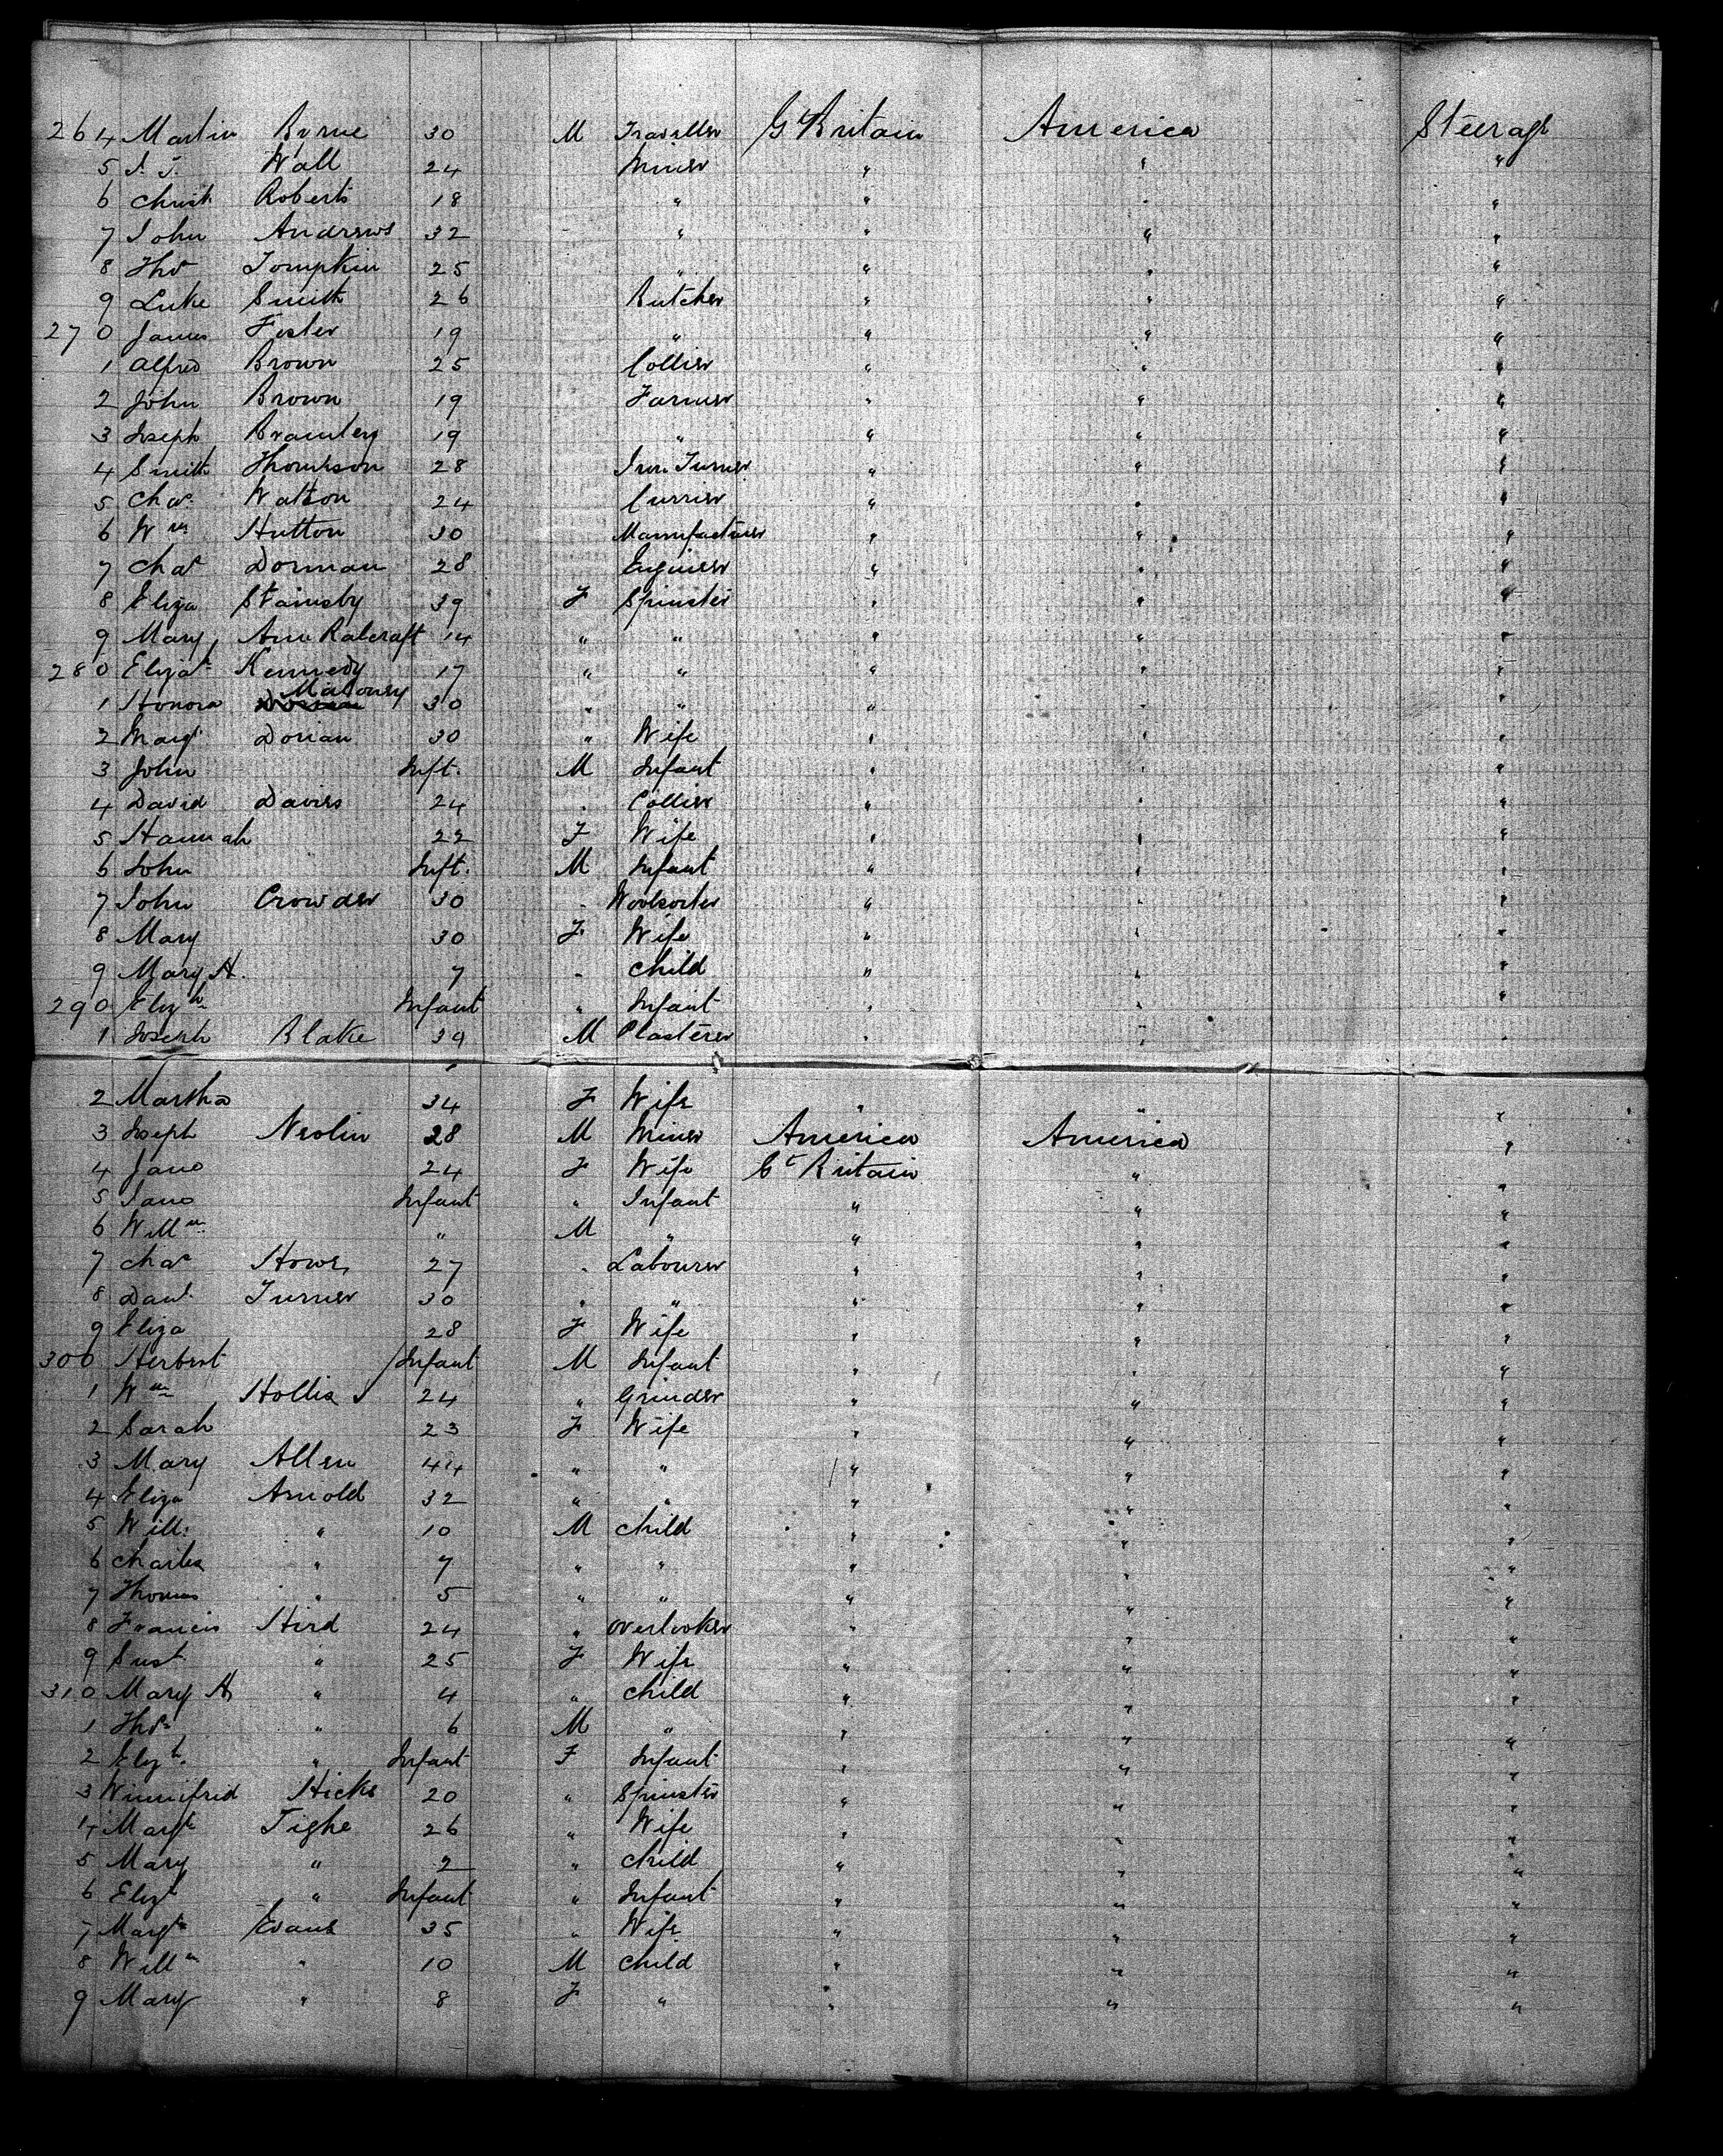 264 Martin Byrne 30 M Traveller Gt Britain America Steerage
5 J. J. Wall 24 Miner " " "
6 Christ Roberts 18 " " " "
7 John Andrews 32 " " " "
8 Thos Tompkin 25 " " " "
9 Luke Smith 26 Butcher " " "
270 James Foster 19 " " " "
1 Alfred Brown 25 Collier " " "
2 John Brown 19 Farmer " " "
3 Joseph Bramley 19 " " " "
4 Smith Thompson 28 Iron Turner " " "
5 Chas. Watson 24 Currier " " "
6 Wm Hutton 30 Manufacturer " " "
7 Chas Dorman 28 Engineer " " "
8 Eliza Stainsby 39 F Spinster " " "
9 Mary Ann Ralcraft 14 " " " " "
280 Elizat Kennedy 17 " " " " "
1 Honora Maloney 30 " " " " "
2 Margt Dorian 30 " Wife " " "
3 John Inft. M Infant " " "
4 David Davies 24 " Collier " " "
5 Hannah 22 F Wife " " "
6 John Inft. M Infant " " "
7 John Crowder 30 " Woolsorter " " "
8 Mary 30 F Wife " " "
9 Mary A. 7 " Child " " "
290 Elizth Infant " Infant " " "
1 Joseph Blake 39 M Plasterer " " "
2 Martha 34 F Wife " " "
3 Joseph 28 M Miner America America "
4 Jane 24 F Wife Gt Britain " "
5 Jane Infant " Infant " " "
6 Willm " M " " " "
7 Chas Howe 27 " Labourer " " "
8 Danl. Turner 30 " " " " "
9 Eliza 28 F Wife " " "
300 Herbert Infant M Infant " " "
1 Wm Hollis 24 " Grinder " " "
2 Sarah 23 F Wife " " "
3 Mary Allen 44 " " " " "
4 Eliza Arnold 32 " " " " "
5 Will: " 10 M Child " " "
6 Charles " 7 " " " " "
7 Thomas " 5 " " " " "
8 Francis Hird 24 " Overlooker " " "
9 " 25 F Wife " " "
310 Mary A " 4 " Child " " "
1 Thos " 6 M " " " "
2 Elizt. " Infant F Infant " " "
3 Winnifrid Hicks 20 " Spinster " " "
4 Margt Tighe 26 " Wife " " "
5 Mary " 2 " Child " " "
6 Elizt " Infant " Infant " " "
7 Margt Evans 35 " Wife " " "
8 Willm " 10 M Child " " "
9 Mary " 8 F " " " "